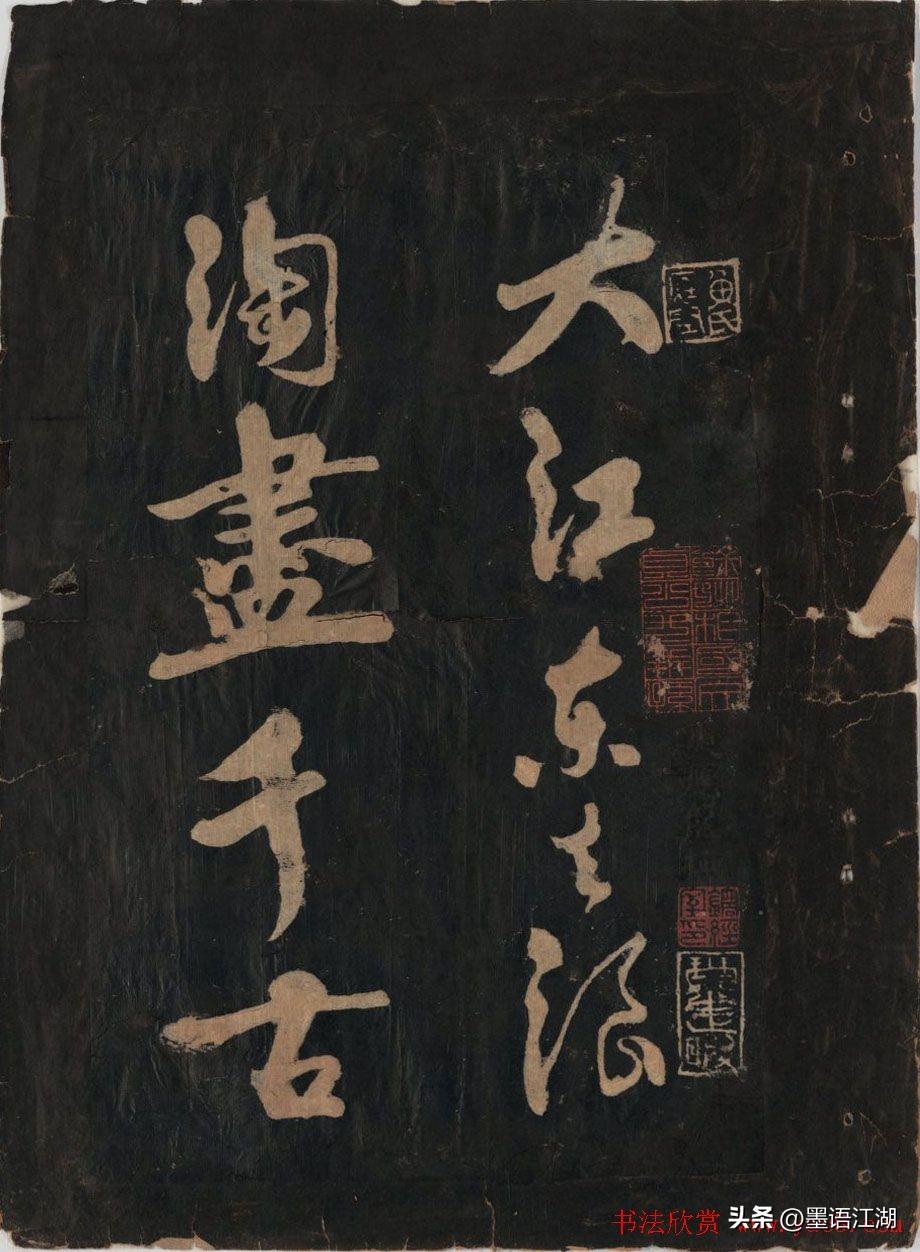 大江东去浪
淘盡千古
黄氏
书法欣赏
头条 @墨语江湖